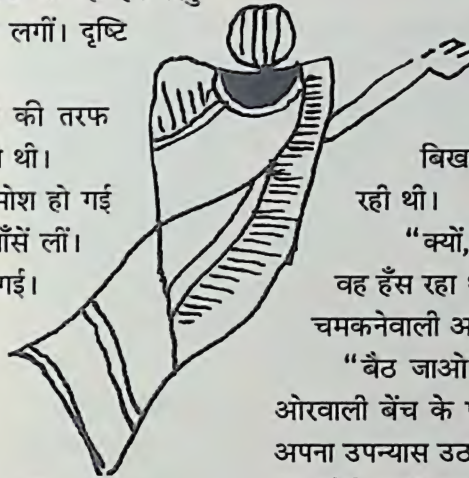 लगीं। दृष्टि
की तरफ
थी।
मोश हो गई
साँसें लीं।
गई।
बिख
रही थी।
“क्यों,
वह हँस रहा
चमकनेवाली
“बैठ जाओ
ओरवाली बेंच के
अपना उपन्यास उठ